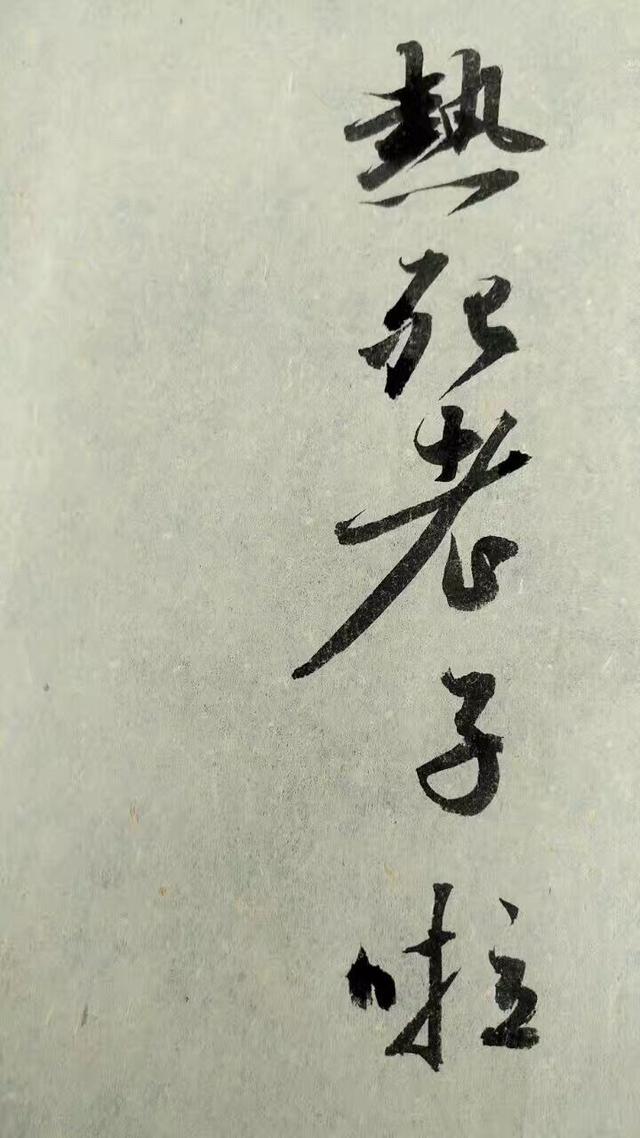 熱死老子啦